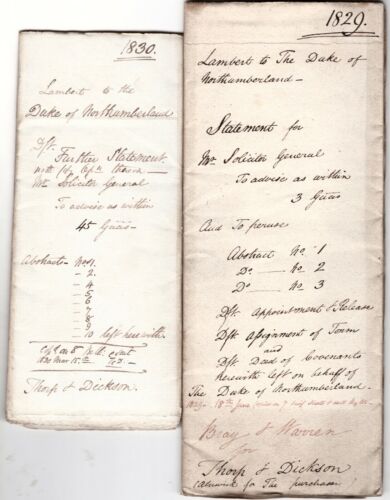 1830.
Lambert to the
Duke of Northumberland
Dft.
Further Statement
with
Mr. Solicitor General
To advise as within
45 Gui's
Abstracts Nos 1.
- 2.
- 4
- 5
- 6
- 7
- 8
- 9
- 10 left herewith
Thorp & Dickson.
1829.
Lambert to The Duke of
Northumberland -
Statement for
Mr. Solicitor General
To advise as within
3 Gui's
And To peruse
Abstract No. 1
Do - No 2
Do. No 3
Dft. Appointment & Release
Dft. Assignment of Term
and
Dft. Deed of Covenants
herewith left on behalf of
The Duke of Northumberland.
1829 - 18th June
Bray & Warren
for
Thorp & Dickson
Alnwick for The purchaser